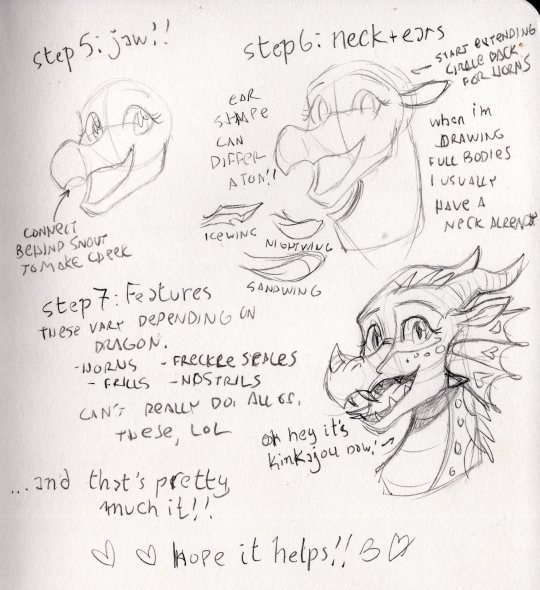 step 5: jaw!!
CONNECT
BEHIND SNOUT
TO MAKE CHEEK
step 6: neck + ears
START EXTENDING
CIRCLE BACK
FOR HORNS
EAR
SHAPE
CAN
DIFFER
ATON!!
ICEWING
NIGHTWING
SANDWING
when im
DRAWING
FULL BODIES
I USUALLY
HAVE A
NECK ALREADY
step 7: Features
THESE VARY DEPENDING ON
DRAGON.
-HORNS -FRECKLE SCALES
-FRILLS -NOSTRILS
CAN'T REALLY DO ALL OF
THESE, LOL
oh hey it's
kinkajou now!
...and that's pretty
much it!!
Hope it helps!!